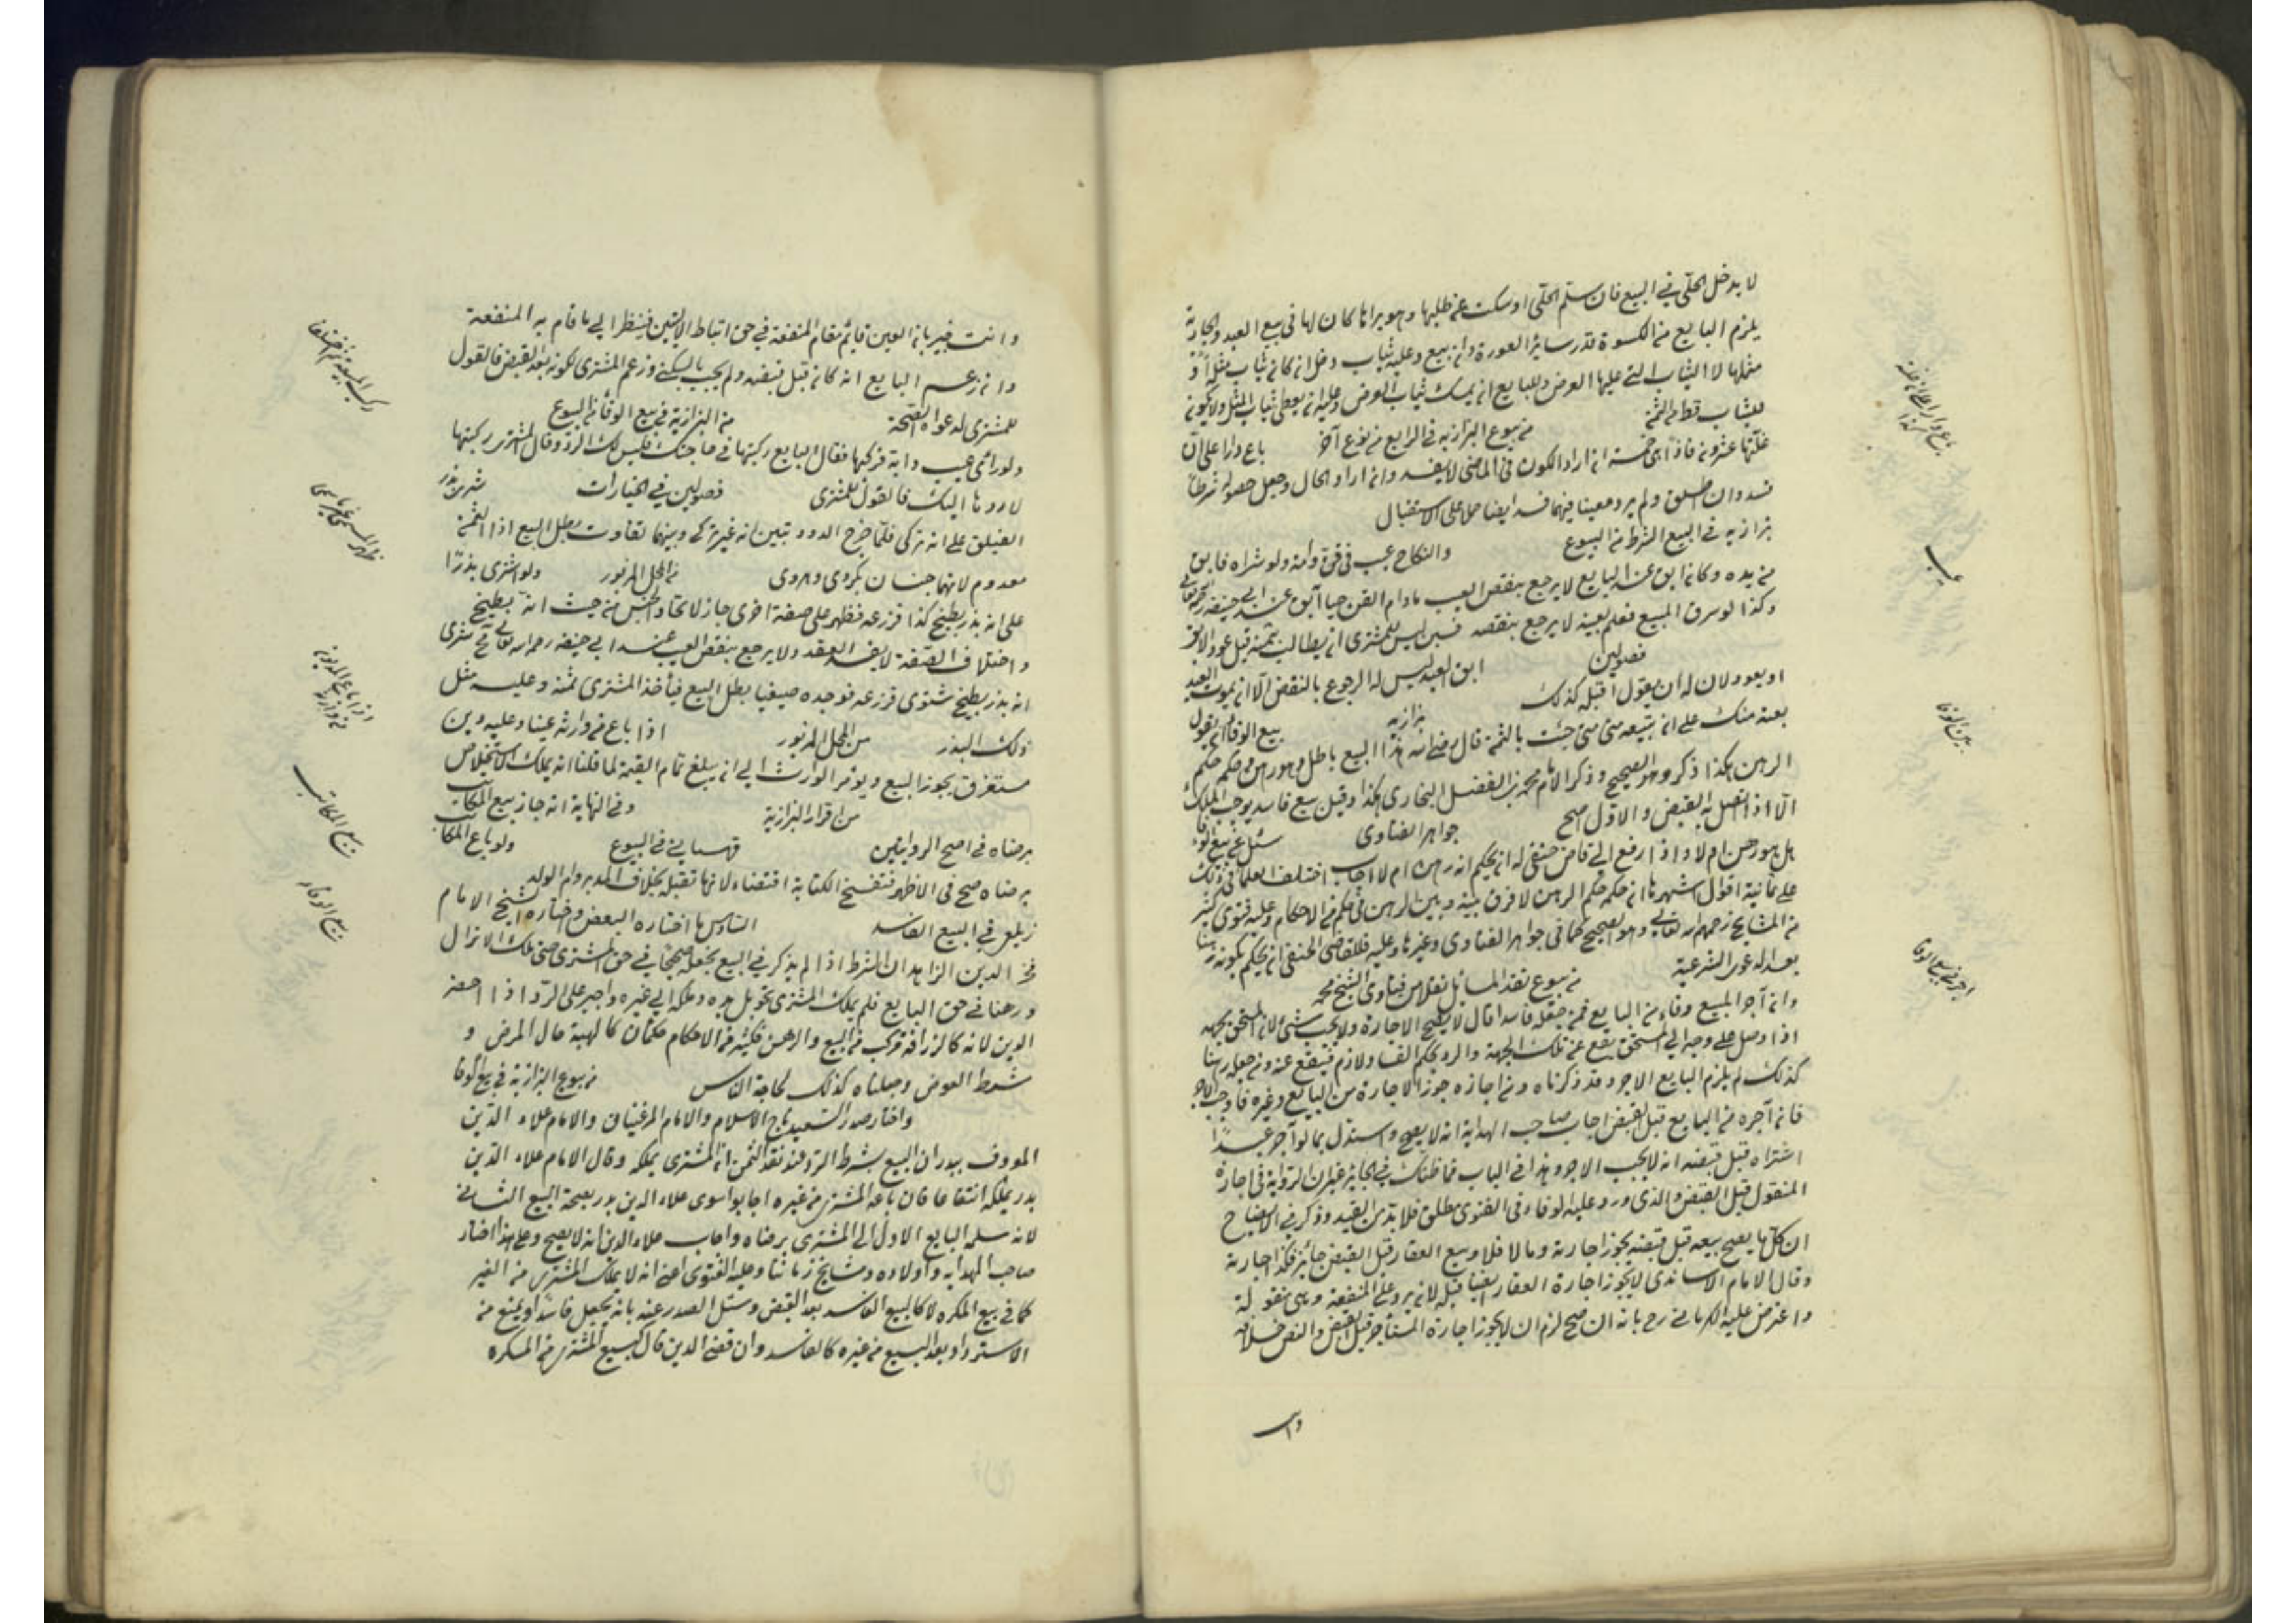 لا يدخل الحلي في البيع فان سلم الحلي او سكت عن طلبها وهو يراها كان لها في بيع العبد والجارية
يلزم البايع من الكسوة قدر ساتر العورة وان بيع وعليه ثياب دخل ان كان ثياب مثله او
مثلها لا الثياب التي عليها العرض وللبايع ان يمسك ثياب العرض وعليه ان يعطي ثياب المثل ولا يكون
للثياب قط من الثمن من بيوع البزازيه في الرابع من نوع آخر باع دارا على ان
غلتها عشرون فاذا هي خمسة ان اراد الكون في الماضي لا يفسد وان اراد الحال وجعل حصوله شرطا
فسد وان اطلق ولم يرد معينا فيهما فسد ايضا حملا على الاستقبال
بزازيه في البيع الشرط من البيوع والنكاح عيب في قن وامة ولو شراه فابق
من يده وكان ابق عند البايع لا يرجع بنقص العيب مادام القن حيا آبق عند ابي حنيفه
وكذا لو سرق المبيع فعلم بعيبه لا يرجع بنقصه ليس للمشترى ان يطالب بثمنه قبل عود الابق
فصولين ابق العبد ليس له الرجوع بالنقص الا ان يموت العبد
او يعود ولان له ان يقول اقبله كذلك بزازيه بيع الوفا ان يقول
بعته منك على ان تبيعه مني متى جئت بالثمن قال بعضهم ان هذا البيع باطل وهو رهن وحكمه حكم
الرهن هكذا ذكر وهو الصحيح وذكر الامام محمد بن الفضل البخارى هكذا وقيل بيع فاسد يوجب الملك
الا اذا اتصل به القبض والاول اصح جواهر الفتاوى سئل عن بيع الوفا
هل هو رهن ام لا واذا رفع الى قاض حنفي له ان يحكم انه رهن ام لا اجاب اختلف العلماء في ذلك
على ثمانية اقوال اشهرها ان حكمه حكم الرهن لا فرق بينه وبين الرهن في حكم من الاحكام وعليه فتوى كثير
من المشايخ رحمهم الله تعالى وهو الصحيح كما في جواهر الفتاوى وغيرها وعليه فللقاضي الحنفي ان يحكم بكونه رهنا
بعد الدعوى الشرعية من بيوع نقد المسائل نقلا من فتاوى الشيخ محمد
وان آجر المبيع وفاء من البايع فمن جعله فاسدا قال لا يصح الاجارة ولا يجب شئ لان المستحق بجهة
اذا وصل على وجه الى المستحق يقع عن تلك الجهة والرد بحكم الفساد لازم فيقع عنه ومن جعله رهنا
كذلك لم يلزم البايع الاجر وقد ذكرناه ومن اجازه جوز الاجارة من البايع وغيره فاوجب الاجر
فان آجره من البايع قبل القبض اجاب صاحب الهداية انه لا يصح واستدل بما لو آجر عبدا
اشتراه قبل قبضه انه لا يجب الاجر وهذا في الباب فما ظنك في الجايز غير ان الرواية في اجارة
المنقول قبل القبض والذى ورد عليه الوفاء في الفتوى مطلق فلا بد من القيد وذكر في الايضاح
ان كل ما يصح بيعه قبل قبضه يجوز اجارته وما لا فلا وبيع العقار قبل القبض جائز فكذا اجارته
وقال الامام الاساندى لا يجوز اجارة العقار ايضا قبله لانه يرد على المنفعة وهي منقولة
واعترض عليه الكرماني رح بانه ان صح لزم ان لا يجوز اجارة المستأجر قبل القبض والنص خلافه
وانت
باع دارا على ان غلته كذا
عيب
رهن الوفا
اجر في بيع الوفا
وانت خبير بان العين قائم مقام المنفعة في حق ارتباط الاثنين فينظر الى ما قام به المنفعة
وان زعم البايع انه كان قبل قبضه ولم يجب بالسكنى وزعم المشترى كونه بعد القبض فالقول
للمشترى لدعواه الصحة من البزازية في بيع الوفا من البيوع
ولو راى عيب دابة فركبها فقال البايع ركبتها في حاجتك فليس لك الرد وقال المشترى ركبتها
لاردها اليك فالقول للمشترى فصولين في الخيارات شرى بذر
الفيلق على انه تركى فلما خرج الدود تبين انه غير تركي وبينهما تفاوت بطل البيع اذا الثمن
معدوم لانهما جنسان كمروى وهروى من المحل المزبور ولو اشترى بذرا
على انه بذر بطيخ كذا فزرعه فظهر على صفة اخرى جاز لاتحاد الجنس من حيث انه بطيخ
واختلاف الصفة لا يفسد العقد ولا يرجع بنقص العيب عند ابي حنيفه رحمه الله تعالى شرى
انه بذر بطيخ شتوى فزرعه فوجده صيفيا بطل البيع فيأخذ المشترى ثمنه وعليه مثل
ذلك البذر من المحل المزبور اذا باع من وارثه عينا وعليه دين
مستغرق يجوز البيع ويؤمر الوارث الى ان يبلغ تمام القيمة لما قلنا انه يملك الاستخلاص
من اقرار البزازية وفي النهاية انه جاز بيع المكاتب
برضاه في اصح الروايتين قهستاني في البيوع ولو باع المكاتب
برضاه صح في الاظهر فتنفسخ الكتابة اقتضاء لانها تقبله بخلاف المدبر وام الولد
زيلعي في البيع الفاسد السادس ما اختاره البعض واختاره الشيخ الامام
فخر الدين الزاهد ان الشرط اذا لم يذكر في البيع يجعله صحيحا في حق المشترى حتى ملك الانزال
ورهنا في حق البايع فلم يملك المشترى تحويل يده وملكه الى غيره واجبر على الرد اذا احضر
الدين لانه كالزرافة مركب من البيع والرهن فكثير من الاحكام حكمان كالهبة حال المرض و
شرط العوض وجعلناه كذلك لحاجة الناس من بيوع البزازية في بيع الوفا
واختار صدر السعيد تاج الاسلام والامام المرغيناني والامام علاء الدين
المعروف ببدر ان البيع بشرط الرد عند نقد الثمن ان المشترى يملكه وقال الامام علاء الدين
بدر يملكه انتفاعا فان باعه المشترى من غيره اجابوا سوى علاء الدين بدر بصحة البيع الثاني
لانه سلمه البايع الاول الى المشترى برضاه واجاب علاء الدين انه لا يصح وعلى هذا اختار
صاحب الهدايه واولاده ومشايخ زماننا وعليه الفتوى اعني انه لا يملك المشترى من الغير
كما في بيع المكره لا كالبيع الفاسد بعد القبض وسئل الصدر عنه بانه يجعل فاسدا ويمنع من
الاسترداد بعد البيع من غيره كالفاسد وان قضى الدين قال كبيع المشترى من المكره
اذا باع المديون من وارثه
بيع المكاتب
بيع الوفاء